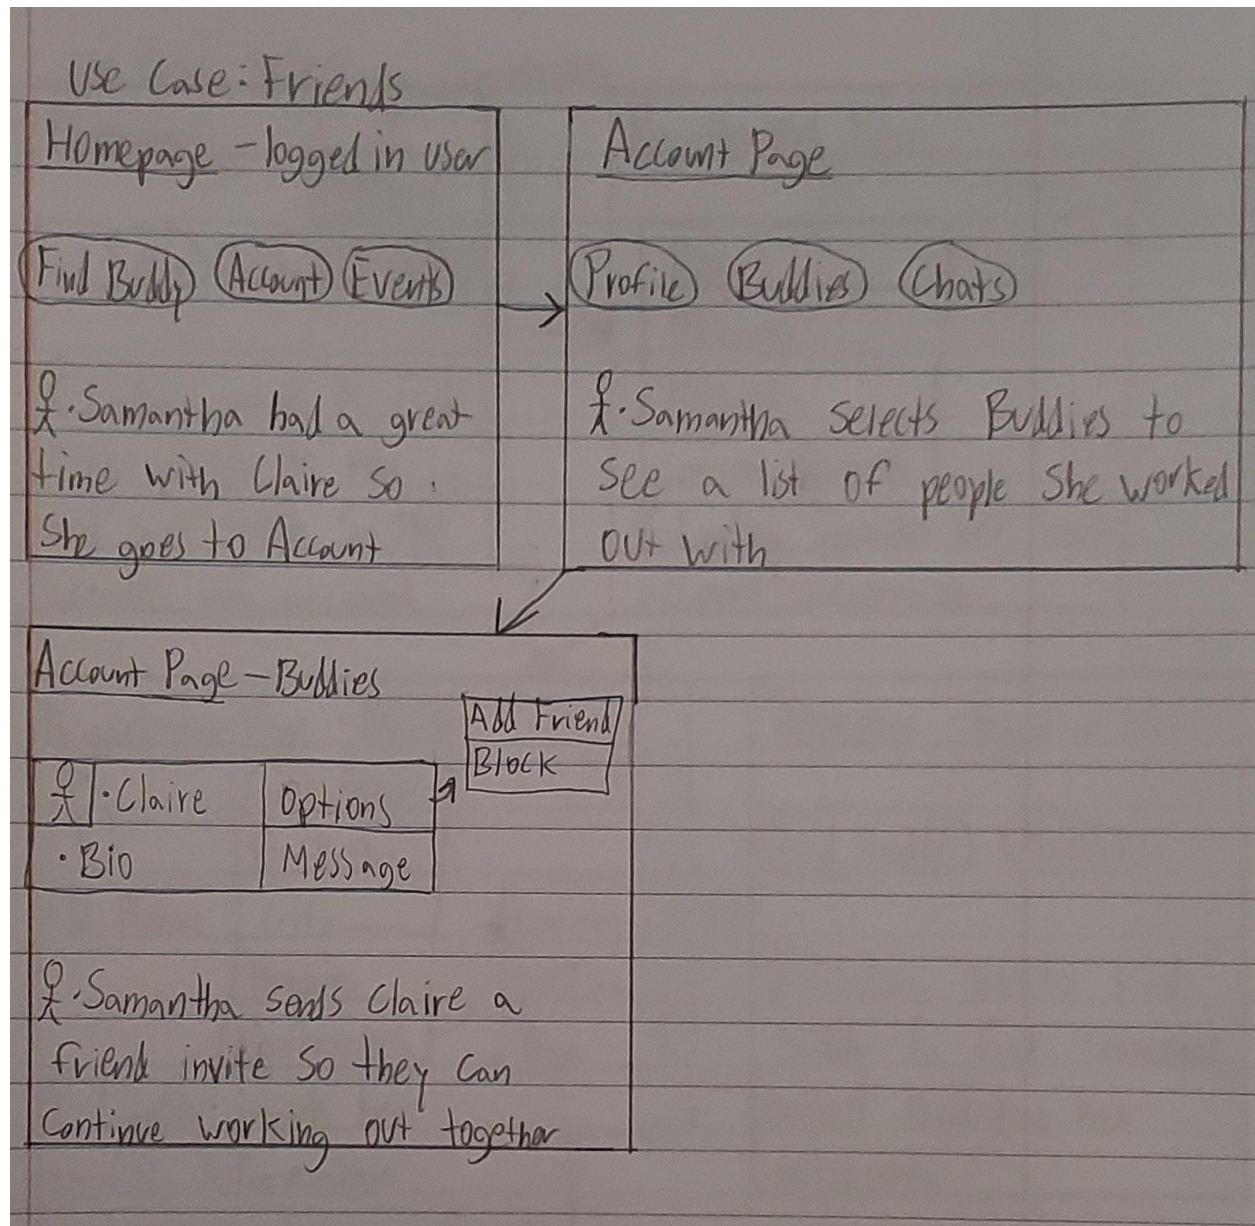 Use Case: Friends
Homepage - logged in user
Find Buddy Account Events
• Samantha had a great
time with Claire so
She goes to Account
Account Page
Profile Buddies Chats
• Samantha selects Buddies to
see a list of people She worked
out with
Account Page - Buddies
Add Friend
Block
• Claire Options
• Bio Message
• Samantha sends Claire a
friend invite so they can
Continue working out together